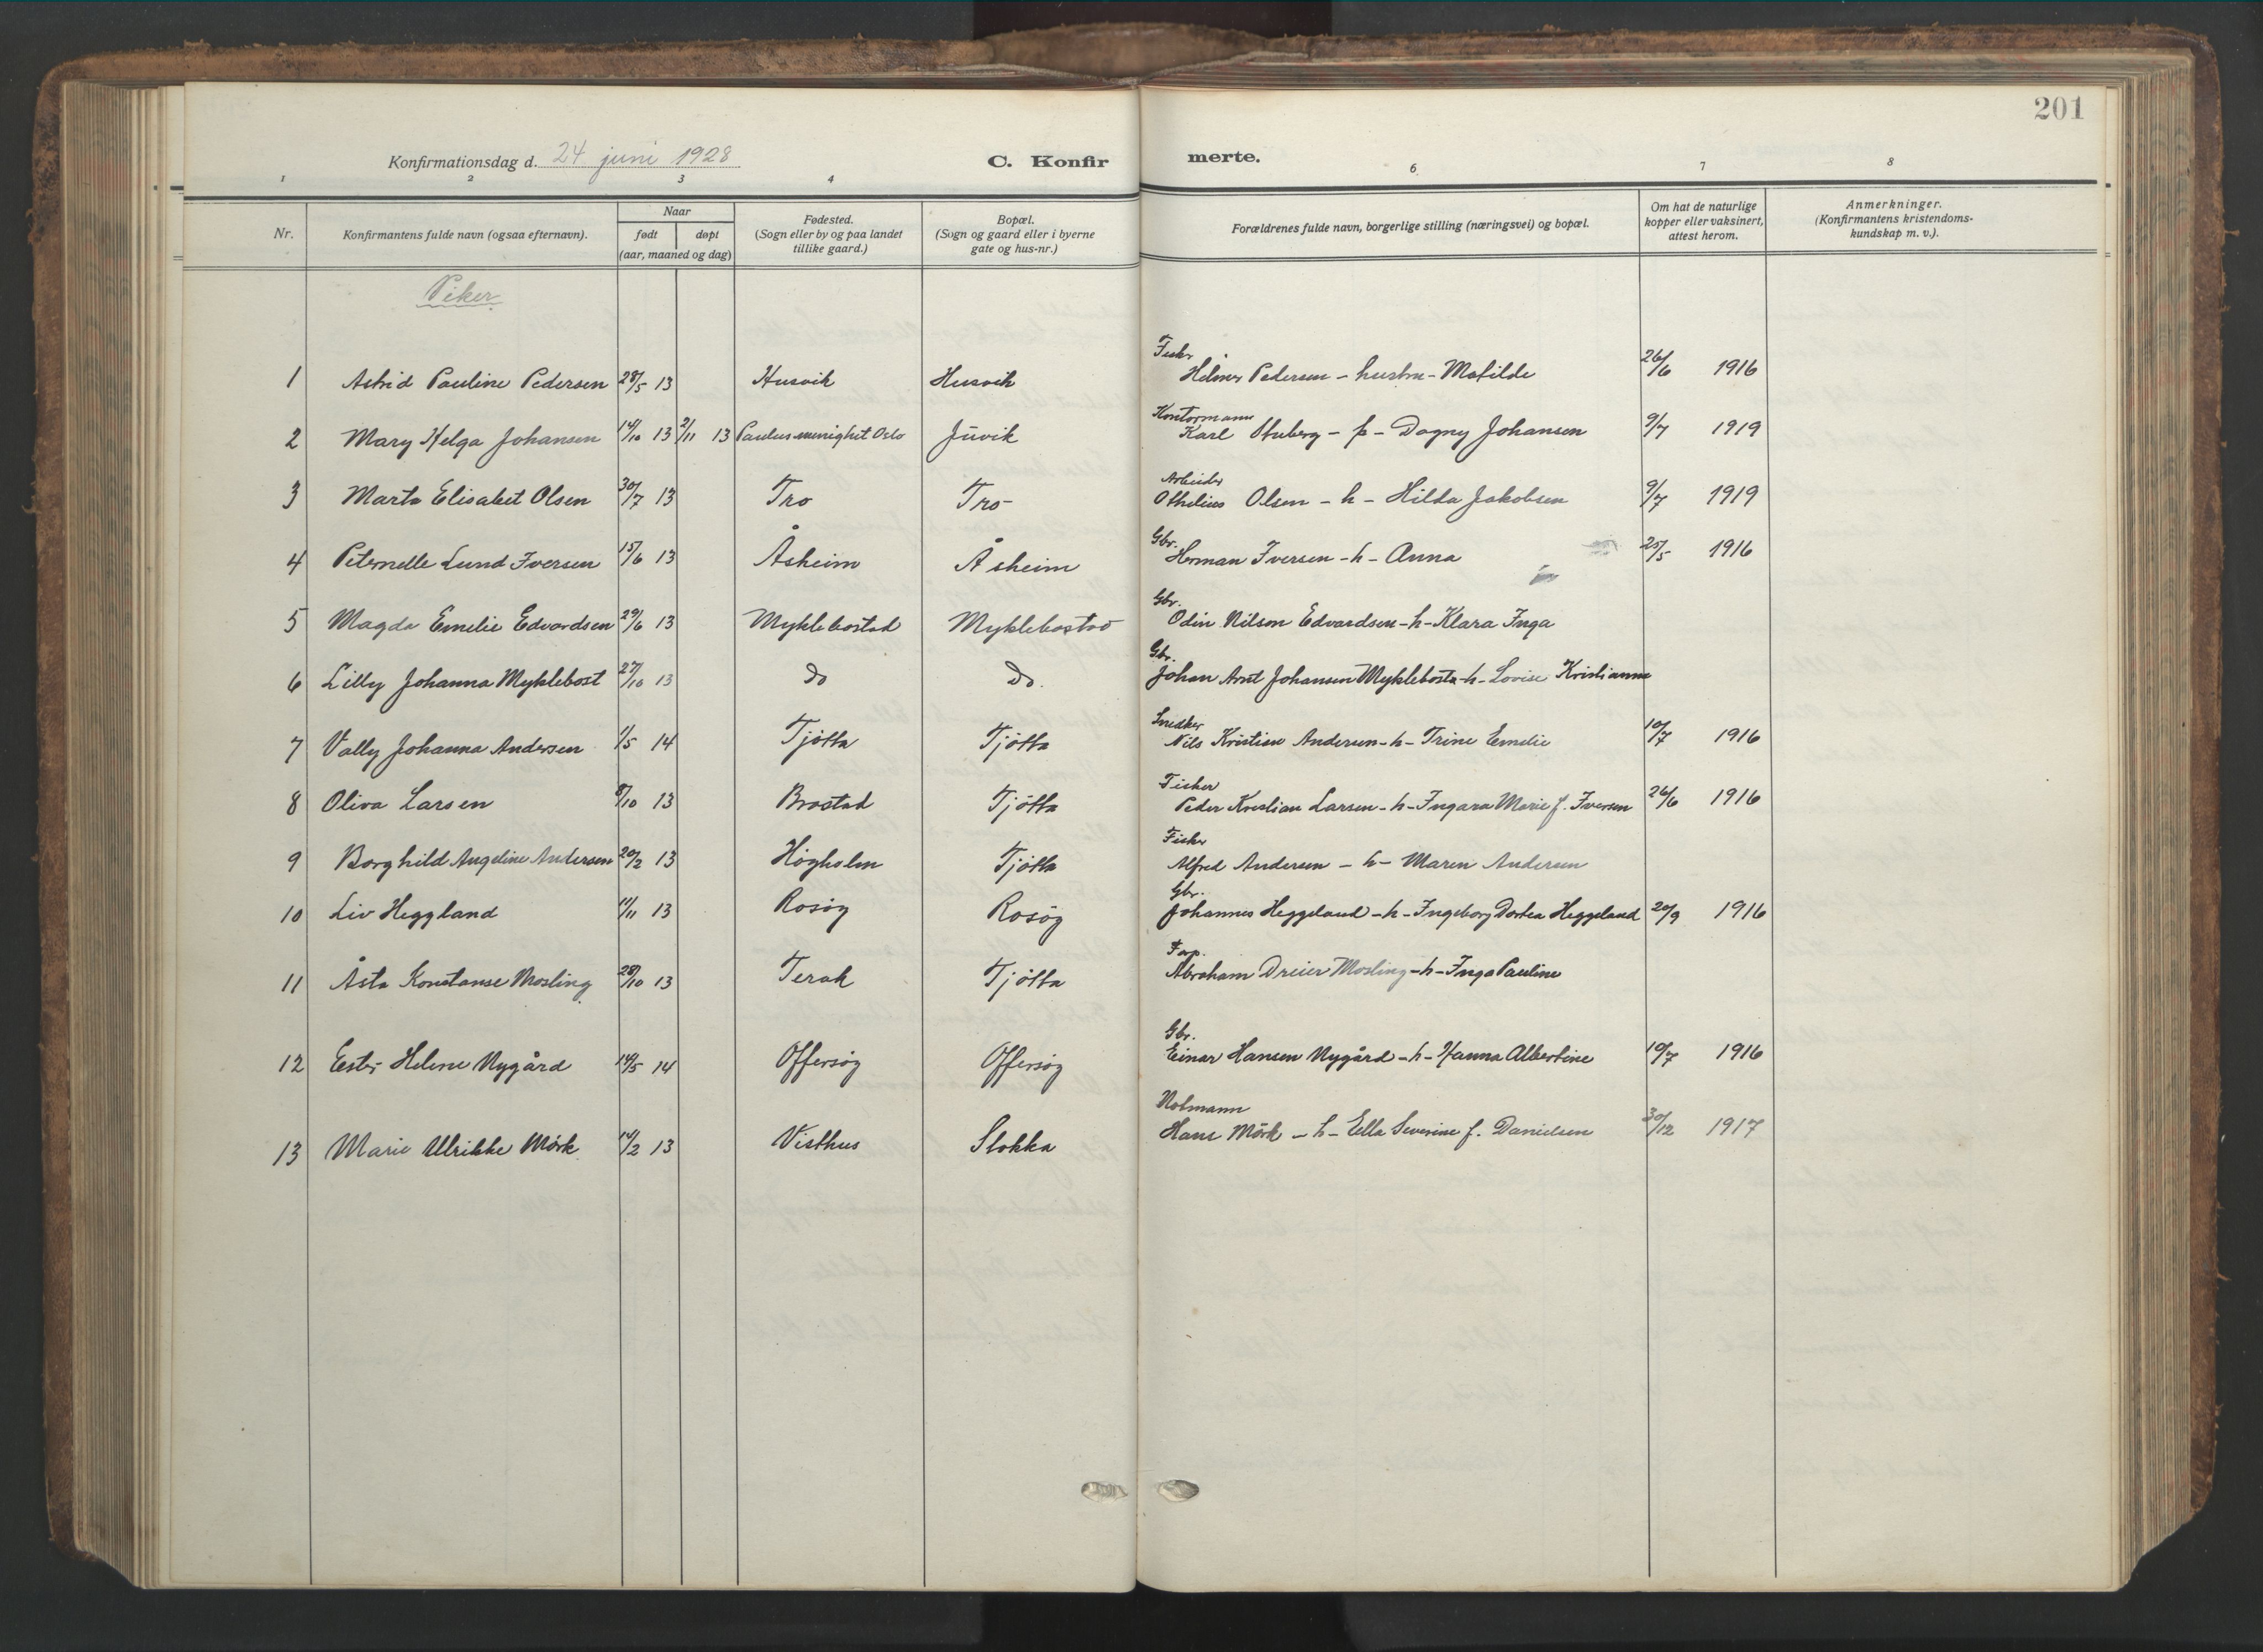 201
Konfirmationsdag d. 24 juni 1928
C. Konfir merte.
1 2 3 4 6 7 8
Nr. Konfirmantens fulde navn (ogsaa efternavn). Naar født døpt (aar, maaned og dag) Fødested. (Sogn eller by og paa landet tillike gaard.) Bopæl. (Sogn og gaard eller i byerne gate og hus-nr.) Forældrenes fulde navn, borgerlige stilling (næringsvei) og bopæl. Om hat de naturlige kopper eller vaksinert, attest herom. Anmerkninger. (Konfirmantens kristendoms-kundskap m. v.).
Piker
Fisker
1 Astrid Pauline Pedersen 28/5 13 Husvik Husvik Helmer Pedersen - hustru - Matilde 26/6 1916
Kontormann
2 Mary Helga Johansen 14/10 13 2/11 13 Paulus menighet Oslo Juvik Karl - f - Dagny Johansen 9/7 1919
Arbeider
3 Marta Elisabet Olsen 30/7 13 Tro Tro Othelius Olsen - h - Hilda Jakobsen 9/7 1919
Gbr.
4 Peternelle Lund Iversen 15/6 13 Åsheim Åsheim Herman Iversen - h - Anna 25/5 1916
Gbr.
5 Magda Emelie Edvardsen 29/6 13 Myklebostad Myklebostad Odin Nilson Edvardsen - h - Klara Inga
Gbr.
6 Lilly Johanna Myklebost 27/10 13 Do Do. Johan Arnt Johansen Myklebosta - h - Lovise Kristianne
Snedker
7 Vally Johanna Andersen 1/5 14 Tjötta Tjötta Nils Kristian Andersen - h - Trine Emelie 10/7 1916
Fisker
8 Oliva Larsen 8/10 13 Brostad Tjötta Peder Kristian Larsen - h - Ingara Marie f. Iversen 26/6 1916
Fisker
9 Borghild Angeline Andersen 20/2 13 Högholm Tjötta Alfred Andersen - h - Maren Andersen
Gbr.
10 Liv Heggland 11/11 13 Rosöy Rosöy Johannes Heggeland - h - Ingeborg Dortea Heggeland 20/9 1916
11 Åsta Konstanse Mosling 28/10 13 Terak Tjötta Abraham Dreier Mosling - h - Inga Pauline
Gbr.
12 Ester Helene Nygård 14/5 14 Offersöy Offersöy Einar Hansen Nygård - h - Hanna Albertine 10/7 1916
Notmann
13 Marie Ulrikke Mörk 14/2 13 Visthus Stokka Hans Mörk - h - Ella Severine f. Danielsen 30/12 1917